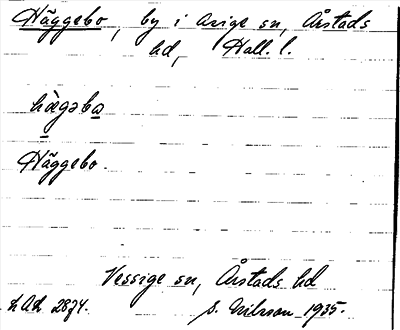 Häggebo, by i Asige sn, Årstads
hd, Hall. l.
hägəbo
Häggebo.
Vessige sn, Årstads hd
LAL 2874.
S. Nilsson 1935.